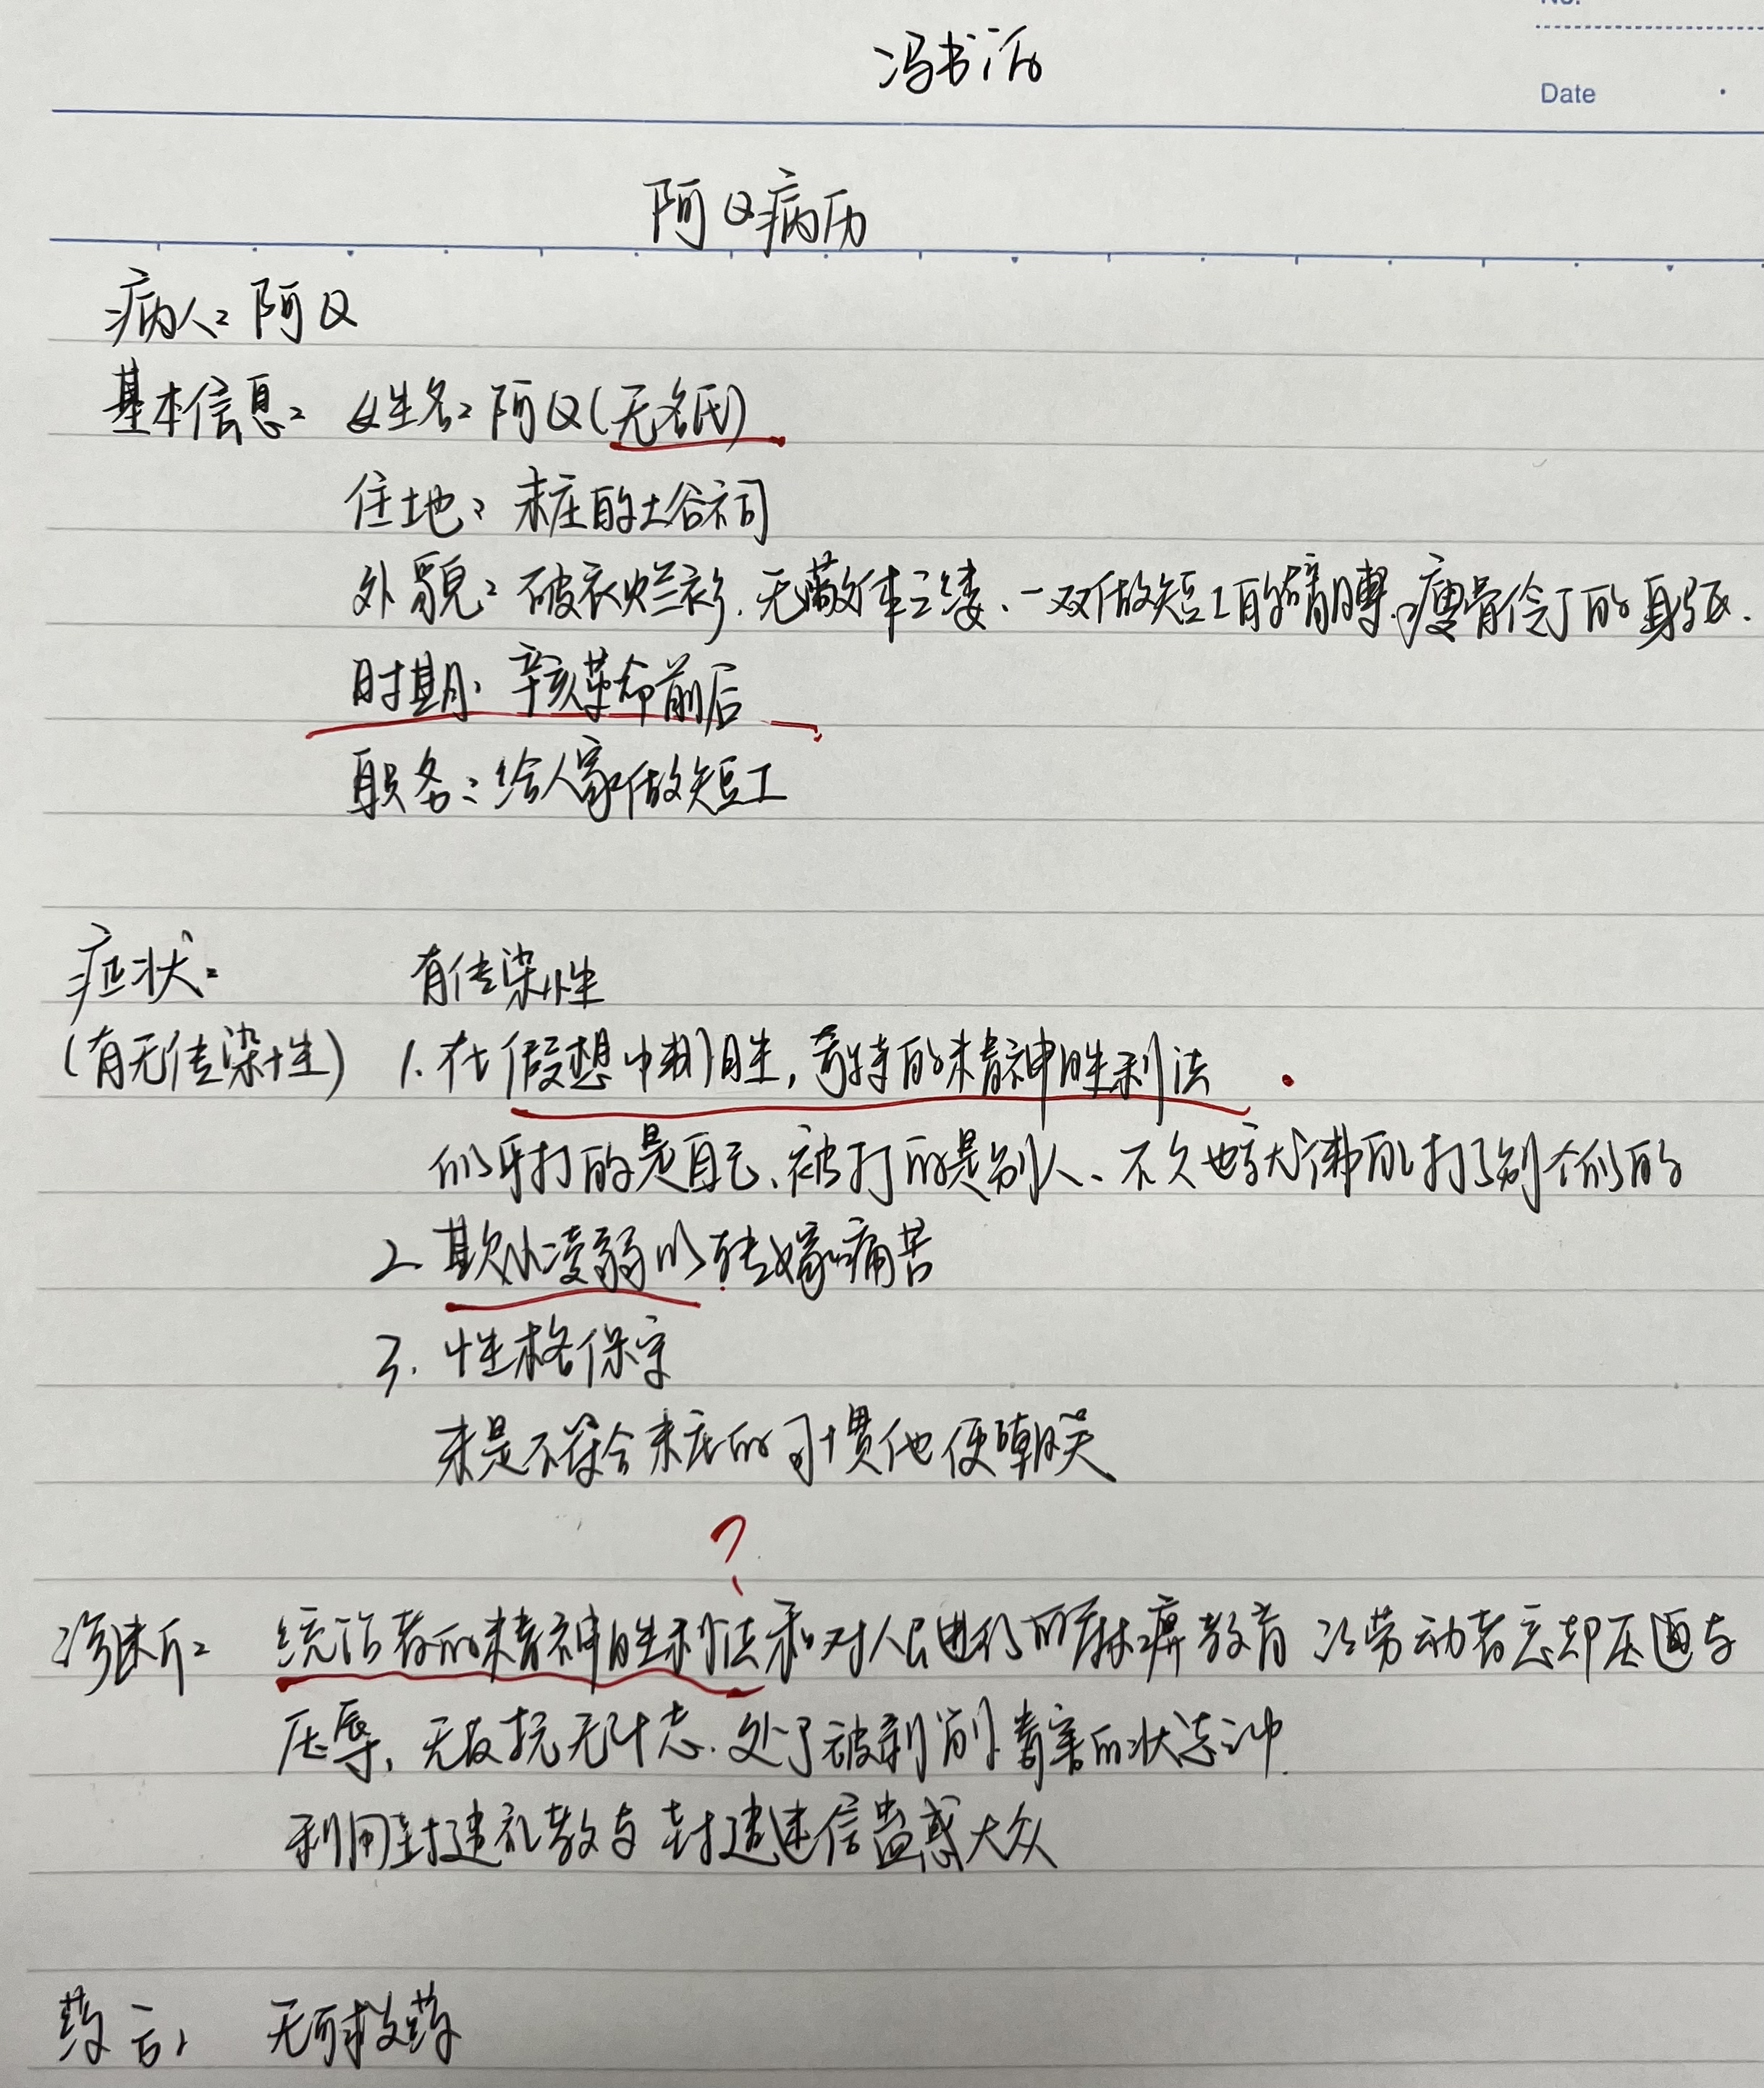 No.
冯书
Date
阿Q病历
病人：阿Q
基本信息：姓名：阿Q（无名氏）
住地：未庄的土谷祠
外貌：破衣烂衫、无蔽体三缕、一双做短工的臂膊、瘦骨伶仃的身躯.
时期：辛亥革命前后
职务：给人家做短工
症状： 有传染性
（有无传染性） 1.在假想中制胜，奇特的精神胜利法
似乎打的是自己、被打的是别人、不久也就仿佛自己打了别个似的
2.欺小凌弱以转嫁痛苦
3.性格保守
未是不符合未庄的习惯他便嘲笑
?
诊断： 统治者的精神胜利法和对人民进行的麻痹教育 让劳动者忘却压迫与
压辱，无反抗无斗志.处于被剥削毒害的状态中.
利用封建礼教与封建迷信蛊惑大众
药方： 无可救药